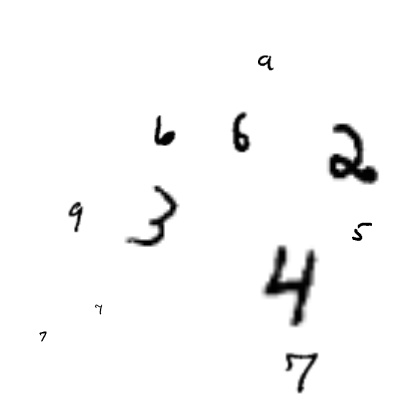 9
6 6 2
9 3 5
4
7
7
7